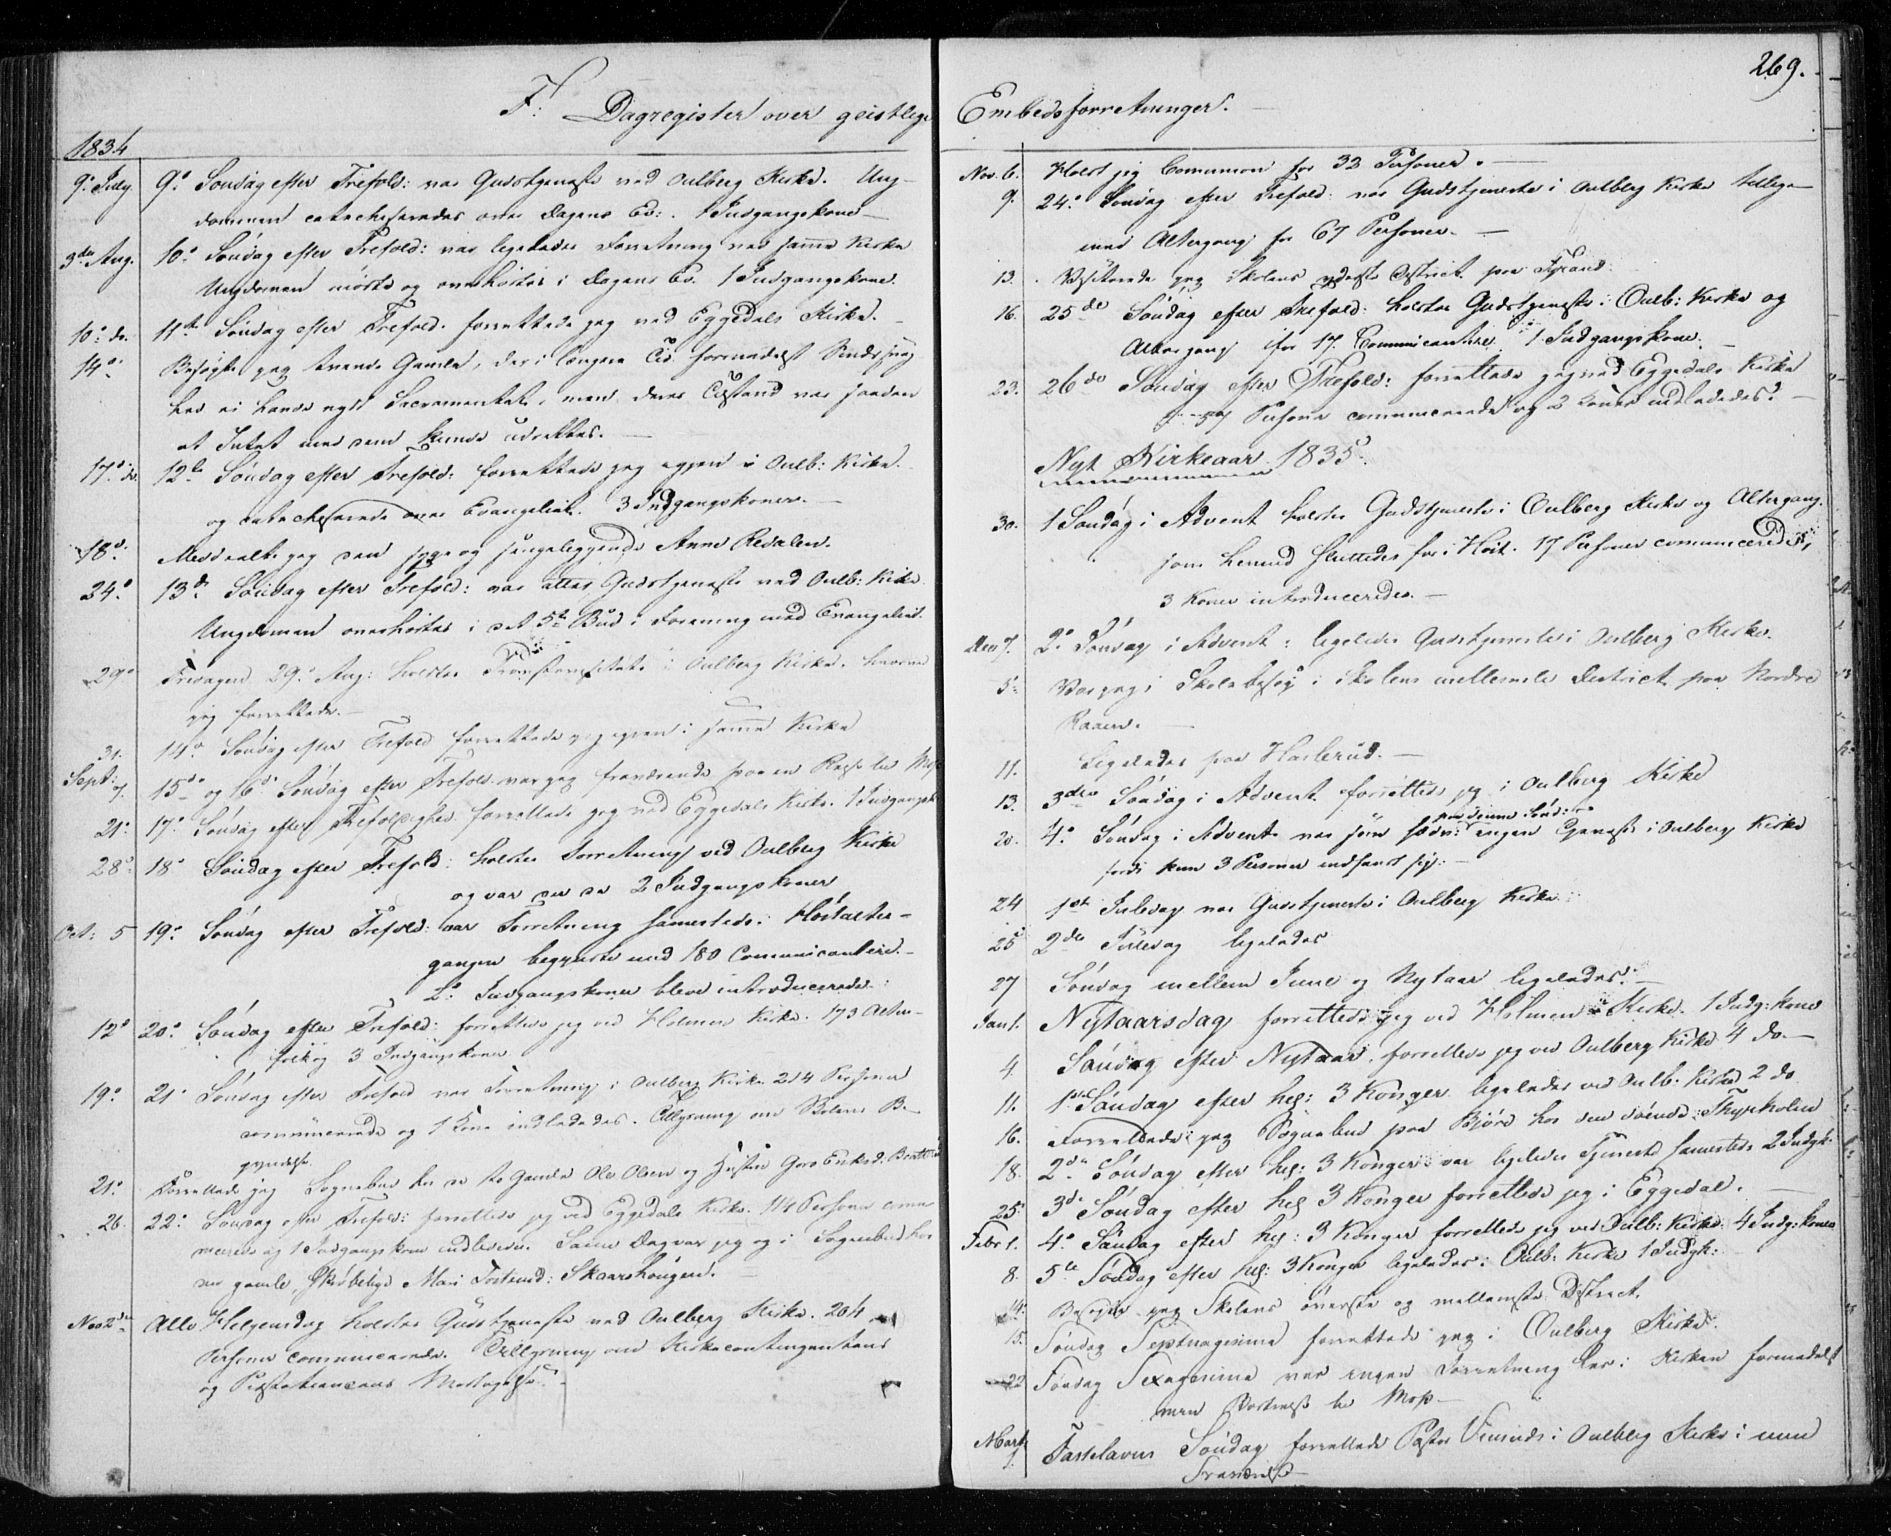 269.
F. Dagregister over geistlige Embedsforretninger.
1834
9de Søndag efter Trefold: var Gudstjeneste ved Oulberg Kirke. Ung-
dommen catecheseredes over Dagens Ev: 1 Indgangskone
3die Aug. 10de Søndag efter Trefold: var ligeledes Forretning ved samme Kirke
Ungdommen mødte og overhørtes i Dagens Ev. 1 Indgangskone.
10de do. 11te Søndag efter Trefold. forrettede jeg ved Eggedals Kirke.
14de Besøgte jeg tvende Gamle, der i længere Tid formedelst
har ei havde nydt Sacramentet, men deres Tilstand var saadan
at Intet med dem kunde udrettes.
17de do. 12te Søndag efter Trefold: forrettede jeg igjen i Oulb: Kirke.
og catecheserede over Evangeliet. 3 Indgangskoner.
18de Meddeelte jeg den syge og sengeliggende Anne Redalen.
24de 13de Søndag efter Trefold: var atter Gudstjeneste ved Oulb: Kirke
Ungdommen overhørtes i det 5te Bud i Forening med Evangeliet.
29de Fredagen 29de Aug: holdtes i Oulberg Kirke, hvorved
jeg forrettede.
31. 14de Søndag efter Trefold forrettede jeg igjen i samme Kirke
Sept: 7. 15de og 16de Søndag efter Trefold. var jeg fraværende paa en Reise til Moss
21de 17de Søndag efter Trefoldighed forrettede jeg ved Eggedals Kirke. 1 Indgangsk.
28de 18de Søndag efter Trefold: holdtes Forretning ved Oulberg Kirke
og var der da 2 Indgangskoner
Oct: 5 19de Søndag efter Trefold: var Forretning sammesteds. Høstalter-
gangen begyndte med 180 Communicantere.
2de Indgangskoner bleve introducerede.
12de 20de Søndag efter Trefold: forrettede jeg ved Holmen Kirke. 173 Alter-
folk og 3 Indgangskoner
19de 21de Søndag efter Trefold var Forretning i Oulberg Kirke 214 Personer
communicerede og 1 Kone indlededes. Tillysning om Skolens Be-
gyndelse.
21de Forrettede jeg Sognebud hos de to Gamle Ole Olsen og Hustru Goro Eriksd.
26. 22de Søndag efter Trefold: forrettede jeg ved Eggedals Kirke. 114 Personer commu-
nicerede og 1 Indgangskone indlededes. Samme Dag var jeg og i Sognebud hos
den gamle, skrøbelige Mari Torsteinsd: Skaarshougen.
Nov 2de Alle Helgensdag holdtes Gudstjeneste ved Oulberg Kirke. 204
Personer communicerede. Tillysning om Kirkecontingentens
og Modtagelse.
Nov. 6. Holdt jeg Communion for 33 Personer.
9. 24de Søndag efter Trefold: var Gudstjeneste i Oulberg Kirke tillige
med Altergang for 67 Personer.
13. Visiterede jeg Skolens yderste District paa
16. 25de Søndag efter Trefold: holdtes Gudstjeneste i Oulb: Kirke og
Altergang for 17 Communicantere. 1 Indgangskone.
23. 26de Søndag efter Trefold: forrettede jeg ved Eggedals Kirke
57 Personer communicerede og 2 Koner indlededes.
Nyt Kirkeaar 1835.
30. 1 Søndag i Advent holdtes Gudstjeneste i Oulberg Kirke og Altergang,
som hermed sluttedes for i Høst. 17 Personer communicerede,
3 Koner introduceredes.
Dec 7. 2de Søndag i Advent: ligeledes Gudstjeneste i Oulberg Kirke.
5te Var jeg i Skolebesøg i Skolens mellemste District paa Nordre
Raaen.
11. Ligeledes paa Haslerud.
13. 3die Søndag i Advent forrettede jeg i Oulberg Kirke
20. 4de Søndag i Advent var engen Tjeneste i Oulberg Kirke
fordi kun 3 Personer indfandt sig.
24 1ste Juledag var Gudstjeneste i Oulberg Kirke
25 2den Juledag ligeledes
27 Søndag mellem Juul og Nytaar ligeledes.
Jan 1. Nytaarsdag forrettede jeg ved Holmen Kirke. 1 Indg: kone
4 Søndag efter Nytaar forrettede jeg ved Oulberg Kirke 4 do.
11. 1ste Søndag efter hel: 3 Konger ligeledes ved Oulb: Kirke 2 do
16. Forrettede jeg Sognebud paa Bjøre hos den døende
18. 2den Søndag efter hel: 3 Konger var ligeledes Tjeneste sammesteds 2 Indgk:
25 3die Søndag efter hel 3 Konger forrettede jeg i Eggedal.
Febr 1. 4de Søndag efter hel: 3 Konger forrettede jeg ved Oulb: Kirke. 4 Indg: koner
8. 5te Søndag efter hel: 3 Konger ligeledes i Oulb: Kirke 1 Indgk:
14. Besøgte jeg Skolens øverste og mellemste District.
15. Søndag Septuagesima forrettede jeg i Oulberg Kirke.
22 Søndag Sexagesima var ingen Forretning her i Kirken formedelst
min Bortreise til Moss
Marts 1. Fastelavns Søndag forrettede Pastor i Oulberg Kirke i min
Fraværelse